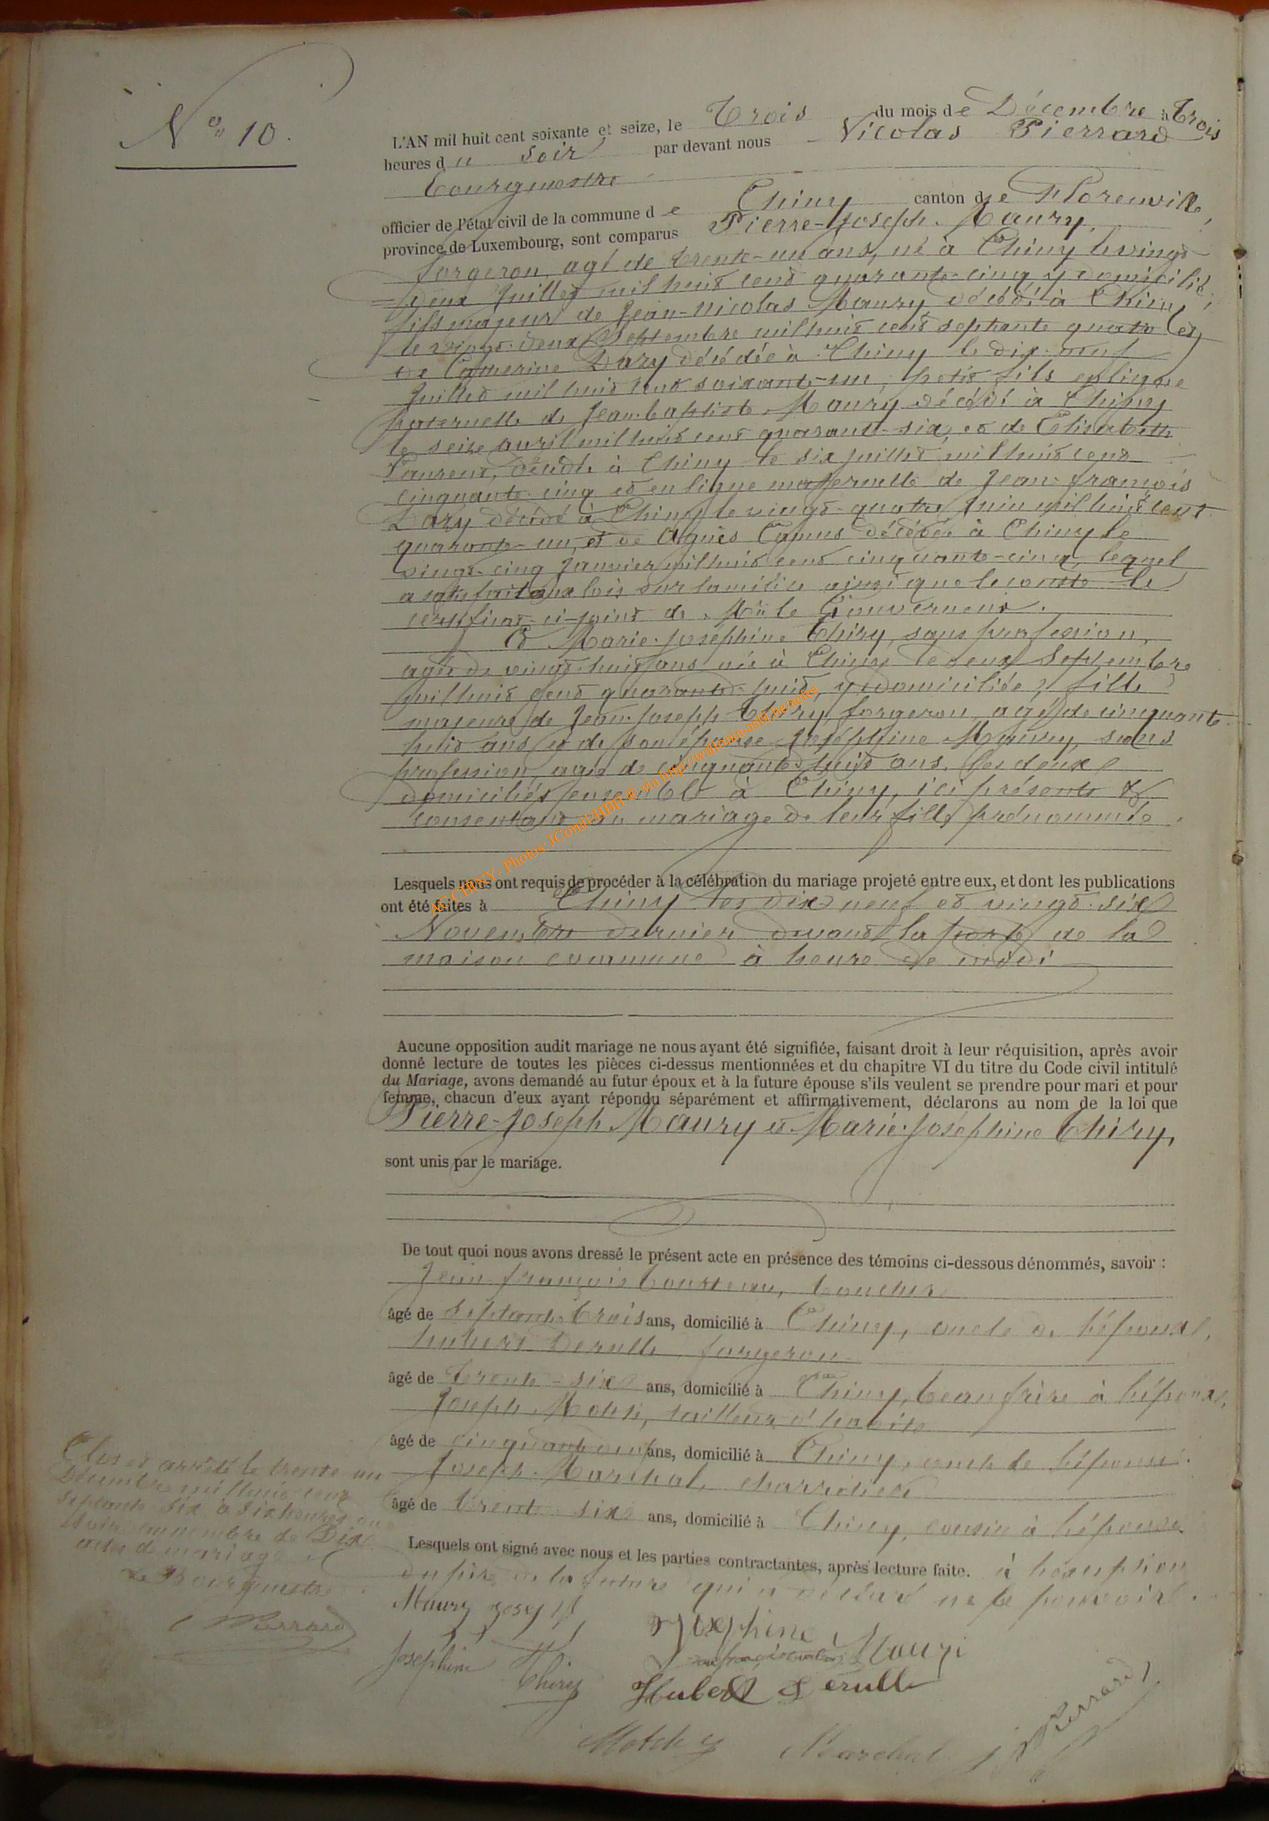 N° 10.
L'AN mil huit cent soixante et seize, le Trois du mois de Décembre à trois
heures du soir par devant nous Nicolas Pierrard
bourgmestre
officier de l'état civil de la commune de Chiny canton de Florenville,
province de Luxembourg, sont comparus Pierre-Joseph Maury,
forgeron, agé de trente-un ans, né à Chiny le vingt
deux Juillet mil huit cent quarante-cinq y domicilié,
fils majeur de Jean-Nicolas Maury décédé à Chiny
le vingt-deux Septembre mil huit cent septante quatre et
de Catherine Dary décédée à Chiny le dix-neuf
Juillet mil huit cent soixante-un, petit fils en ligne
paternelle de Jean-Baptiste Maury décédé à Chiny
le seize avril mil huit cent quarante-six, et de Elisabeth
Laurent, décédée à Chiny le six juillet mil huit cent
cinquante-cinq et en ligne maternelle de Jean-françois
Dary décédé à Chiny le vingt-quatre Juin mil huit cent
quarante-un, et de Agnès Camus décédée à Chiny le
vingt-cinq Janvier mil huit cent cinquante-cinq, lequel
a satisfait aux lois sur la milice ainsi que le conste le
certificat ci-joint de Mr le Gouverneur.
Et Marie-Joséphine Thiry, sans profession,
agée de vingt-huit ans née à Chiny le deux Septembre
mil huit cent quarante-huit, y domiciliée, fille
majeure de Jean-Joseph Thiry forgeron, agé de cinquante
huit ans et de son épouse Joséphine Maury, sans
profession, agée de cinquante huit ans, les deux
domiciliés ensemble à Chiny, ici présents &
consentant au mariage de leur fille prénommée.
Lesquels nous ont requis de procéder à la célébration du mariage projeté entre eux, et dont les publications
ont été faites à Chiny les dix neuf et vingt-six
Novembre dernier devant la porte de la
maison commune à heure de midi
Aucune opposition audit mariage ne nous ayant été signifiée, faisant droit à leur réquisition, après avoir
donné lecture de toutes les pièces ci-dessus mentionnées et du chapitre VI du titre du Code civil intitulé
du Mariage, avons demandé au futur époux et à la future épouse s'ils veulent se prendre pour mari et pour
femme, chacun d'eux ayant répondu séparément et affirmativement, déclarons au nom de la loi que
Pierre-Joseph Maury et Marie-Joséphine Thiry,
sont unis par le mariage.
De tout quoi nous avons dressé le présent acte en présence des témoins ci-dessous dénommés, savoir :
Jean françois
âgé de septante-trois ans, domicilié à Chiny, oncle de l'époux,
hubert Derulle forgeron
âgé de trente-six ans, domicilié à Chiny, beau frère à l'époux,
Joseph tailleur d'habits
âgé de ans, domicilié à Chiny, oncle de l'épouse.
Joseph Maréchal,
âgé de trente-six ans, domicilié à Chiny, cousin à l'épouse
Lesquels ont signé avec nous et les parties contractantes, après lecture faite. à l'exception
du père de la future qui a déclaré ne le pouvoir.
Clos et arrêté le trente un
Décembre mil huit cent
septante-six à six heures du
soir au nombre de Dix
actes de mariage
Le Bourgmestre
Pierrard
Maury Josep
Josephine Mauri
Josephine Thiry
Hubert Derulle
Marechal
Pierrard